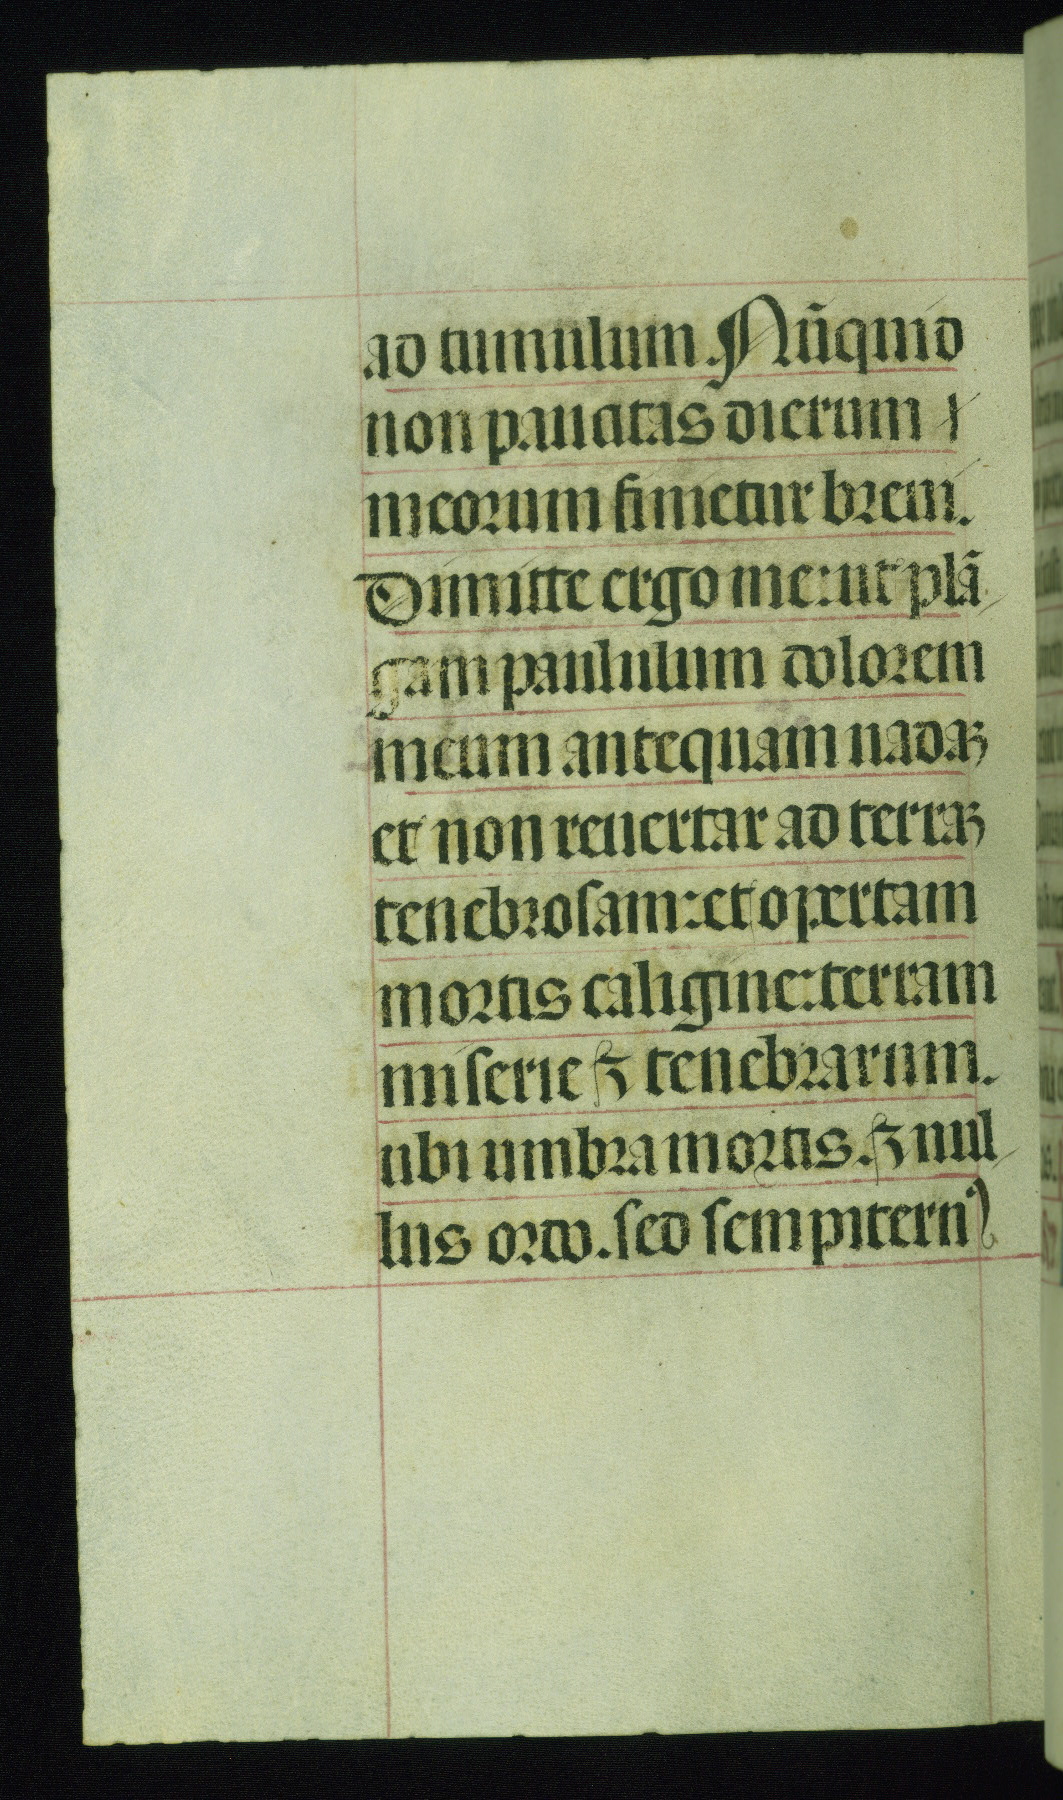 ad tumulum. Nūquid
non paucitas dierum
meorum finietur breui.
Dimitte ergo me: ut plā
gam paululum dolorem
meum antequam uadaꝫ
et non reuertar ad terraꝫ
tenebrosam: et opertam
mortis caligine: terram
miserie ⁊ tenebrarum.
ubi umbra mortis. ⁊ nul
lus ordo. sed sempitern᾽